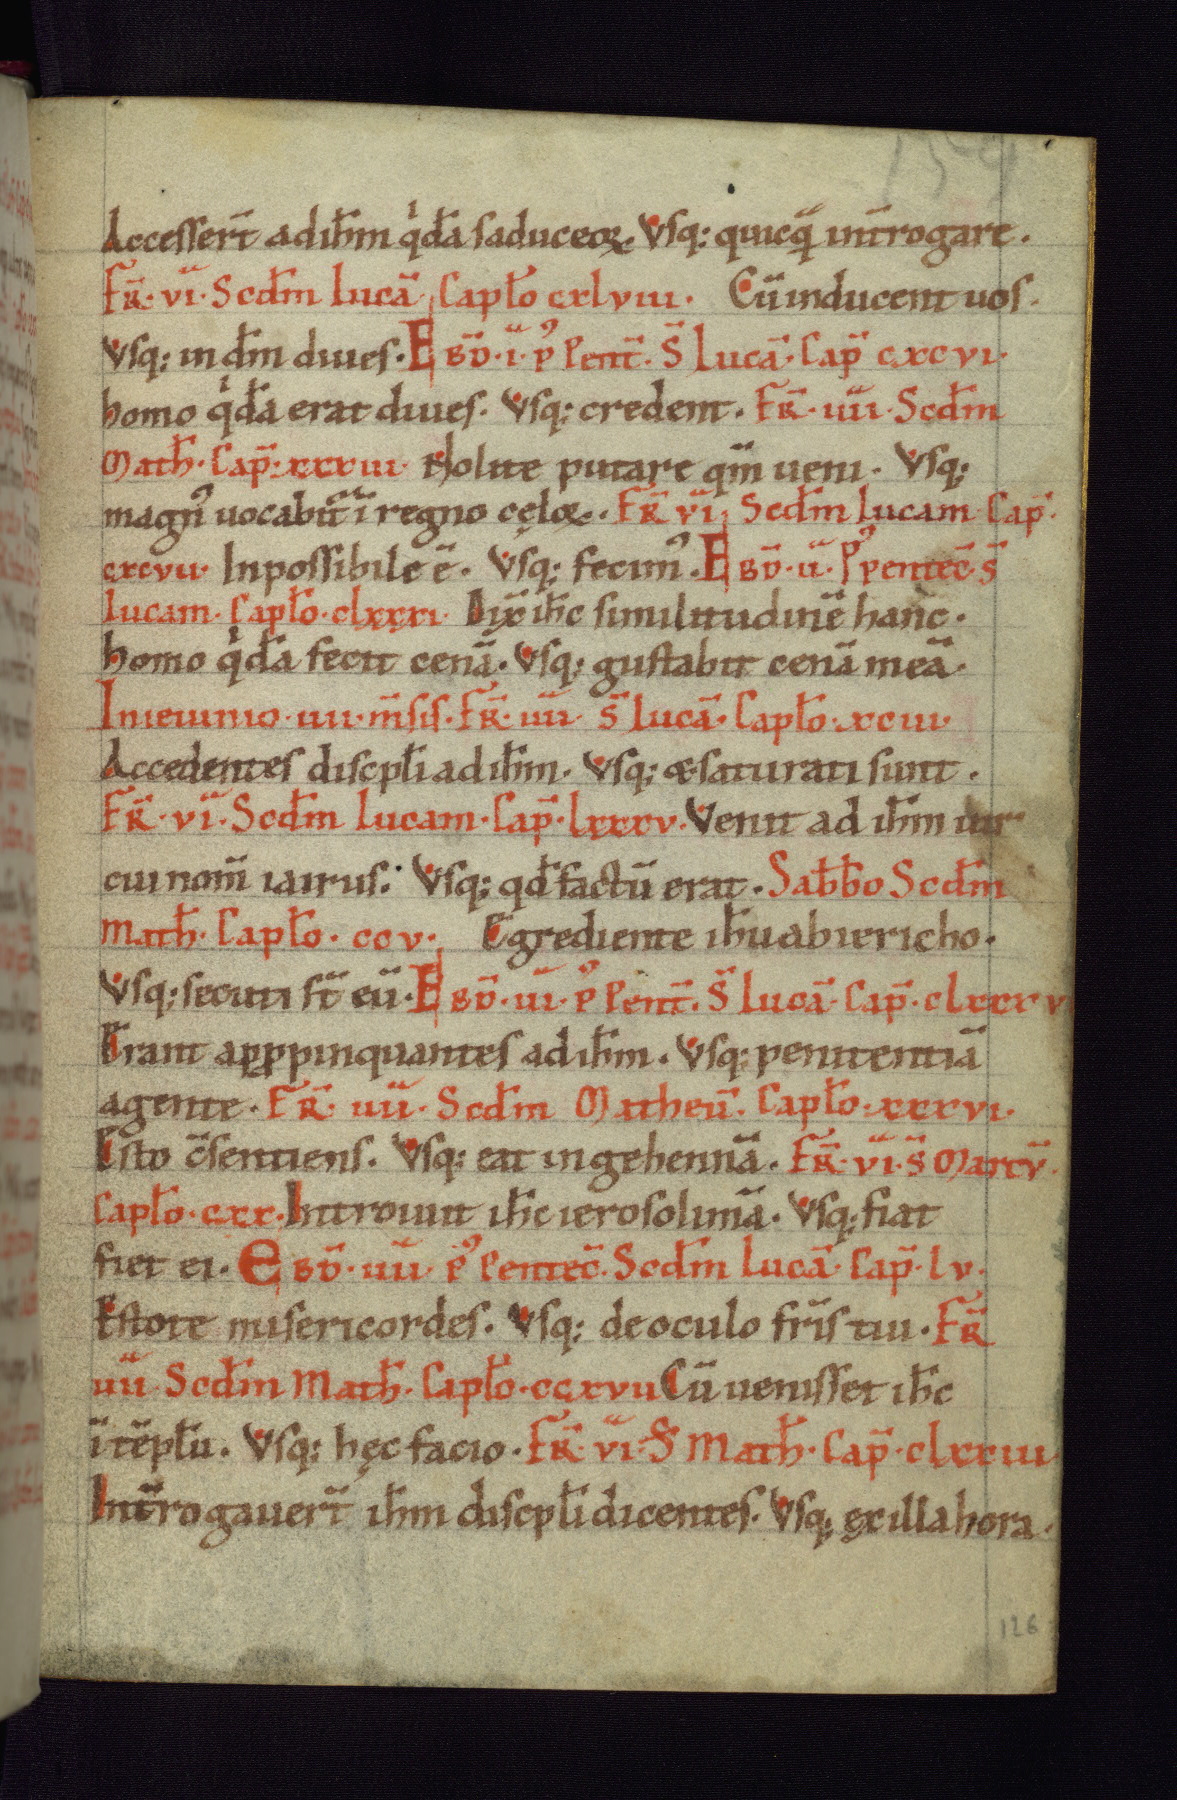 Accesser̄t ad ih̄m qͥda saduceoꝝ. Vsq; quicq̄ int̄rogare.
Fr̄. vi. Scdm̄ lucā. Capło cxlviii. Cū inducent uos.
Vsq; in dm̄ diues. Ebd̄. i. p' Pent̄. S̄ Lucā. Cap̄ cxcvi.
homo qͥda erat diues. Vsq; credent. Fr̄. iiii. Scdm̄
Math̄. Cap̄. xxxiii. Nolite putare qm̄ ueni. Vsq;
magn' uocabit̄ ī regno cęloꝝ. Fr̄ vi. Scdm̄ lucam Cap̄.
cxcvii. Inpossibile ē. Vsq; fecim'. Ebd̄. ii. p' pentec̄. S̄
lucam. Capło. clxxxi. Dix̄ ih̄c similitudinē hanc.
homo qͥda fecit cenā. Vsq; gustabit cenā meā.
In ieiunio. iiii. m̄sis. Fr̄. iiii. S̄ lucā. Capło. xciii.
Accedentes discpłi ad ih̄m. Vsq; & saturati sunt.
Fr̄. vi. Scdm̄ lucam. Cap̄. lxxxv. Venit ad ih̄m uir
cui nom̄ iairus. Vsq; qd̄ factū erat. Sabb̄o Scdm̄
Math̄. Capło. ccv. Egrediente ih̄u ab iericho.
Vsq; secuti st̄ eū. Ebd̄. iii. p' Pent̄. S̄ lucā. Cap̄. clxxxv
Erant appropinquantes ad ih̄m. Vsq; penitentiā
agente. Fr̄. iiii. Scdm̄ Matheū. Capło. xxxvi.
Esto c̄sentiens. Vsq; eat in gehennā. Fr̄. vi. S̄ Marcū.
Capło. cxx. Introiuit ih̄c ierosolimā. Vsq; fiat
fiet ei. Ebd̄. iiii. p' Pentec̄. Scdm̄ Lucā. Cap̄. lv.
Estote misericordes. Vsq; de oculo fr̄is tui. Fr̄
iiii. Scdm̄ Math̄. Capło. ccxvii Cū uenisset ih̄c
ī tēpłu. Vsq; hęc facio. Fr̄. vi. S̄ Math̄. Cap̄. clxxiii
Int̄rogauer̄t ih̄m discpłi dicentes. Vsq; ex illa hora.
126